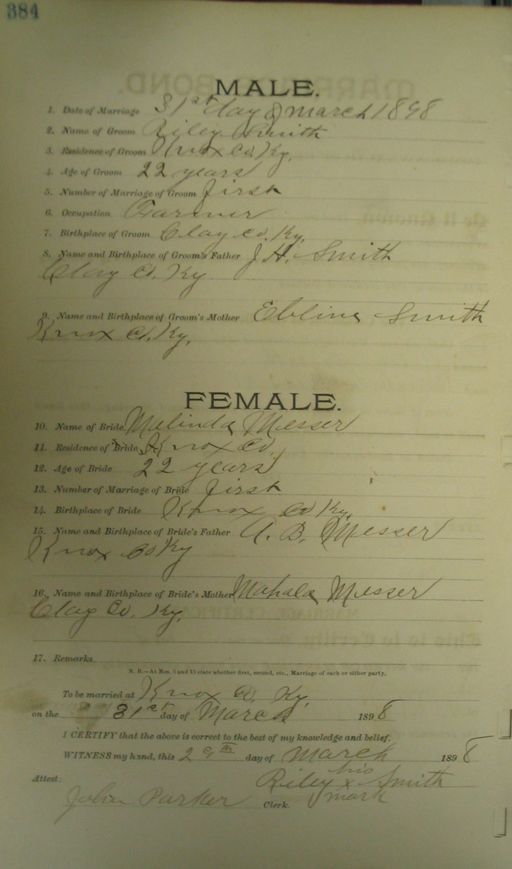 384
MALE.
1. Date of Marriage 31st day of March 1898
2. Name of Groom Riley Smith
3. Residence of Groom Knox Co. Ky.
4. Age of Groom 22 years
5. Number of Marriage of Groom first
6. Occupation Farmer
7. Birthplace of Groom Clay Co. Ky.
8. Name and Birthplace of Groom's Father J. H. Smith
Clay Co. Ky
9. Name and Birthplace of Groom's Mother Ebline Smith
Knox Co. Ky.
FEMALE.
10. Name of Bride Melinda Messer
11. Residence of Bride Knox Co.
12. Age of Bride 22 years
13. Number of Marriage of Bride first
14. Birthplace of Bride Knox Co Ky.
15. Name and Birthplace of Bride's Father A. B. Messer
Knox Co Ky
16. Name and Birthplace of Bride's Mother Mahala Messer
Clay Co. Ky.
17. Remarks
N. B.—At Nos. 5 and 13 state whether first, second, etc., Marriage of each or either party.
To be married at Knox Co. Ky.
on the 31st day of March 1898
I CERTIFY that the above is correct to the best of my knowledge and belief.
WITNESS my hand, this 29th day of March 1898
his
Attest: Riley x Smith
John Parker Clerk. mark